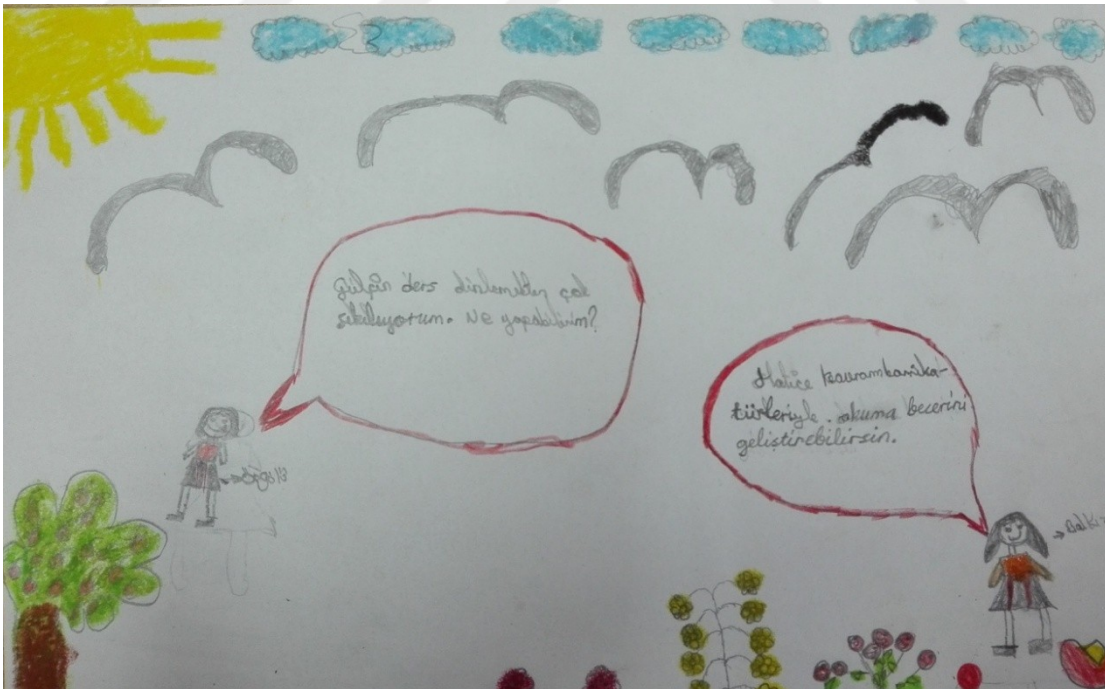 Gülçin ders dinlemekten çok
sıkılıyorum. Ne yapabilirim?
Hatice kavramkarika-
türleriyle okuma becerini
geliştirebilirsin.